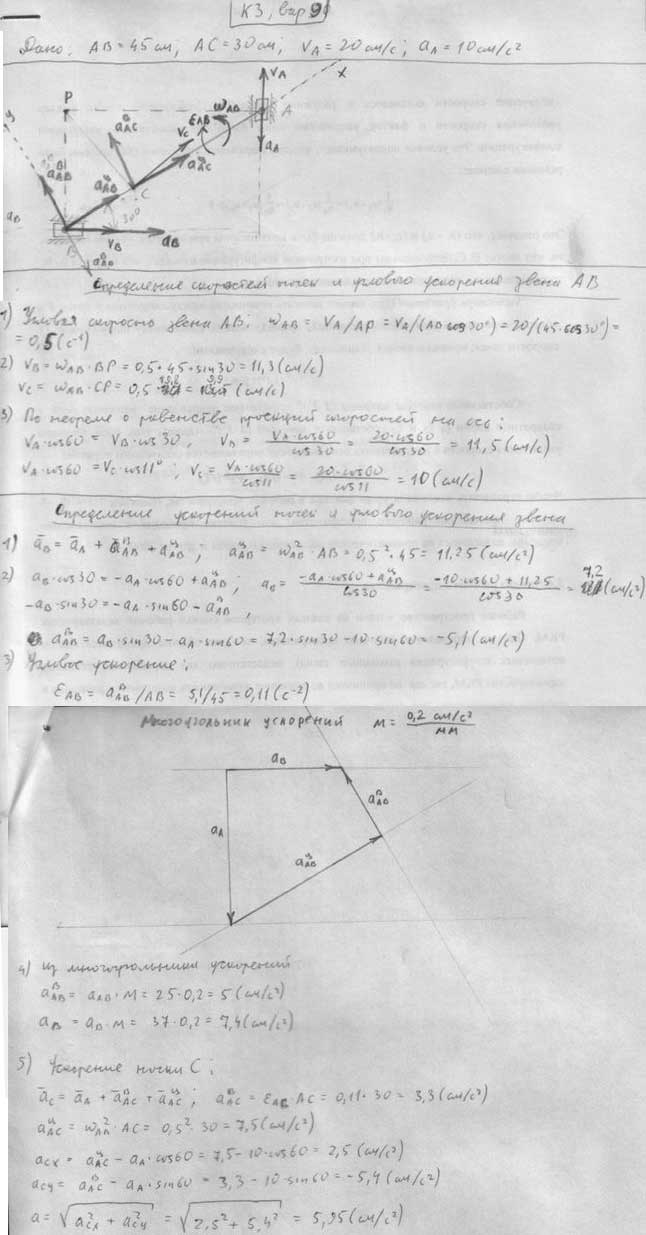 К3, вар 9
Дано: AB = 45 см; AC = 30 см; VA = 20 см/с; aA = 10 см/с²
VA
x
P
ωAB
εAB
A
y
aᴮAC
VC
aᶣAC
aA
aᴮAB
aᶣAB
C
30°
aB
VB
aB
B
aᴮAB
Определение скоростей точек и углового ускорения звена AB
1) Угловая скорость звена AB: ωAB = VA/AP = VA/(AB cos30°) = 20/(45·cos30°) =
= 0,5 (с⁻¹)
2) VB = ωAB · BP = 0,5 · 45 · sin30 = 11,3 (см/с)
VC = ωAB · CP = 0,5 · = (см/с)
3) По теореме о равенстве проекций скоростей на ось:
VA·cos60 = VB·cos30, VB = VA·cos60 / cos30 = 20·cos60 / cos30 = 11,5 (см/с)
VA·cos60 = VC·cos11°; VC = VA·cos60 / cos11 = 20·cos60 / cos11 = 10 (см/с)
Определение ускорений точек и углового ускорения звена
1) āB = āA + āᴮAB + aᶣAB; aᶣAB = ω²AB · AB = 0,5² · 45 = 11,25 (см/с²)
2) aB·cos30 = -aA·cos60 + aᶣAB; aB = -aA·cos60 + aᶣAB / cos30 = -10·cos60 + 11,25 / cos30 = 7,2 (см/с²)
-aB·sin30 = -aA·sin60 - aᴮAB,
aᴮAB = aB·sin30 - aA·sin60 = 7,2·sin30 - 10·sin60 = -5,1 (см/с²)
3) Угловое ускорение:
εAB = aᴮAB/AB = 5,1/45 = 0,11 (с⁻²)
Многоугольник ускорений М = 0,2 см/с² / мм
aB
aA
aᴮAB
aᶣAB
4) из многоугольника ускорений
aᴮAB = aAB · М = 25·0,2 = 5 (см/с²)
aB = aB · М = 37·0,2 = 7,4 (см/с²)
5) Ускорение точки C:
āC = āA + āᴮAC + āᶣAC; aᴮAC = εAC AC = 0,11·30 = 3,3 (см/с²)
aᶣAC = ωAB² · AC = 0,5² · 30 = 7,5 (см/с²)
aCX = aᶣAC - aA·cos60 = 7,5 - 10·cos60 = 2,5 (см/с²)
aCY = aᴮAC - aA·sin60 = 3,3 - 10·sin60 = -5,4 (см/с²)
a = √(a²CX + a²CY) = √(2,5² + 5,4²) = 5,95 (см/с²)